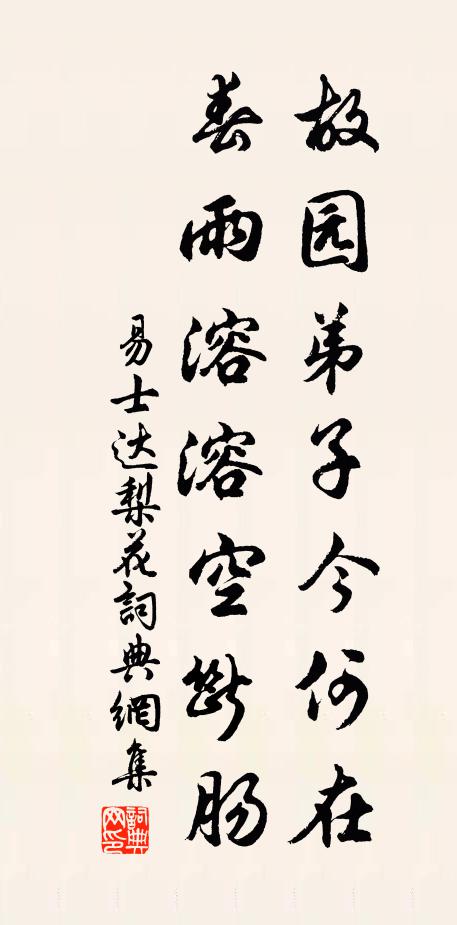 故园弟子今何在
春雨溶溶空断肠
易士达梨花詞典網集
詞典网印